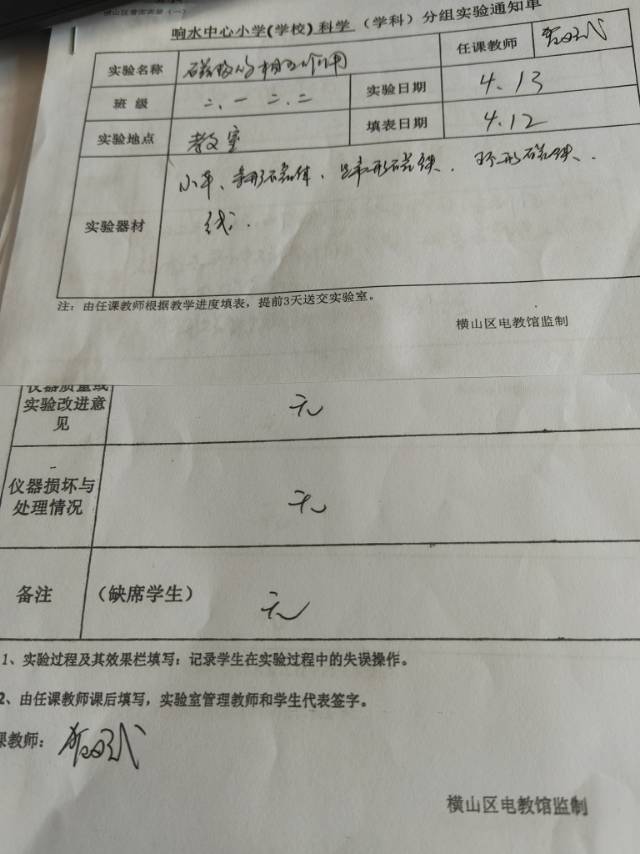 响水中心小学(学校)科学(学科)分组实验通知单
实验名称 磁极的相互作用 任课教师
班 级 二、一 二、二 实验日期 4.13
实验地点 教室 填表日期 4.12
实验器材 小车、条形磁体、蹄形磁铁、环形磁铁、
线.
注：由任课教师根据教学进度填表，提前3天送交实验室。
横山区电教馆监制
仪器质量或
实验改进意
见 无
仪器损坏与
处理情况 无
备注 (缺席学生) 无
1、实验过程及其效果栏填写：记录学生在实验过程中的失误操作。
2、由任课教师课后填写，实验室管理教师和学生代表签字。
课教师：
横山区电教馆监制